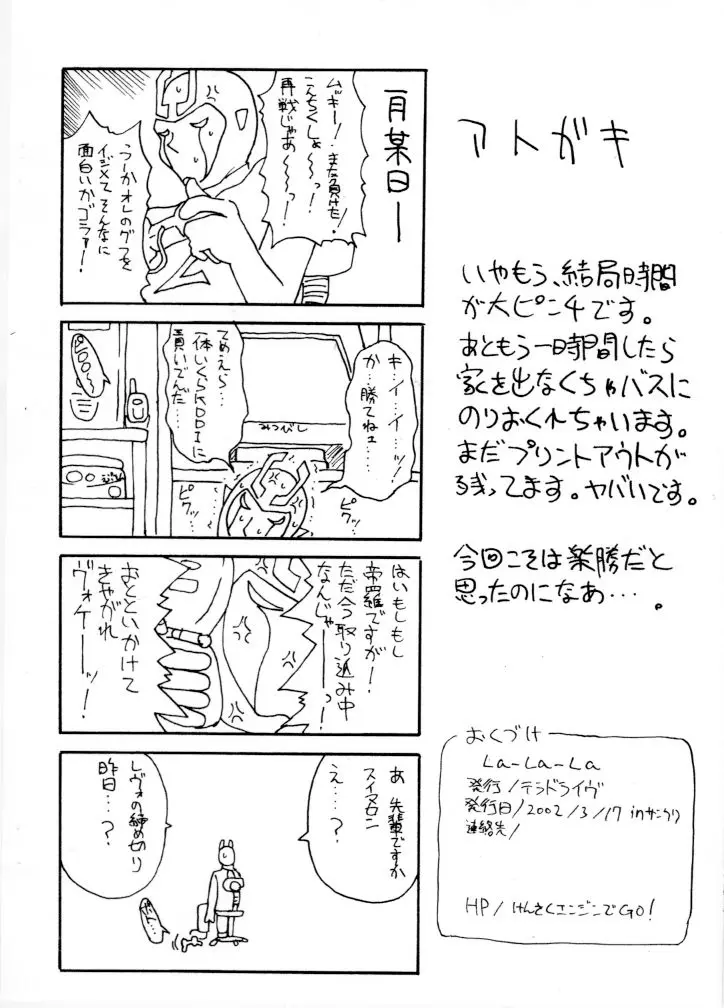 アトガキ
いやもう、結局時間
が大ピンチです。
あともう一時間したら
家を出なくちゃバスに
のりおくれちゃいます。
まだプリントアウトが
残ってます。ヤバいです。
今回こそは楽勝だと
思ったのになあ・・・。
月某日ー
ムッキー!また負けた!
こんちくしょ〜〜っ!
再戦じゃあ〜〜っ!
うーかオレのグフを
イジメてそんなに
面白いかゴラァー!
キ・イ・イ・・ッ!
か・・勝てねェ・・・・
てめえら・・・
一体いくらKDDIに
貢いでんだ・・・
みつがし
ピクッ
ピクッ・・
はいもしもし
帝羅ですが!
ただ今取り込み中
なんじゃーーっ!
おとといかけて
きやがれ
ヴォケーーッ!
あ 先輩ですか
スイマセン
え・・・?
レヴォの締め切り
昨日・・・?
おくづけ
La-La-La
発行/テラドライヴ
発行日/2002/3/17 inサンクリ
連絡先/
HP/けんさくエンジンでGO!